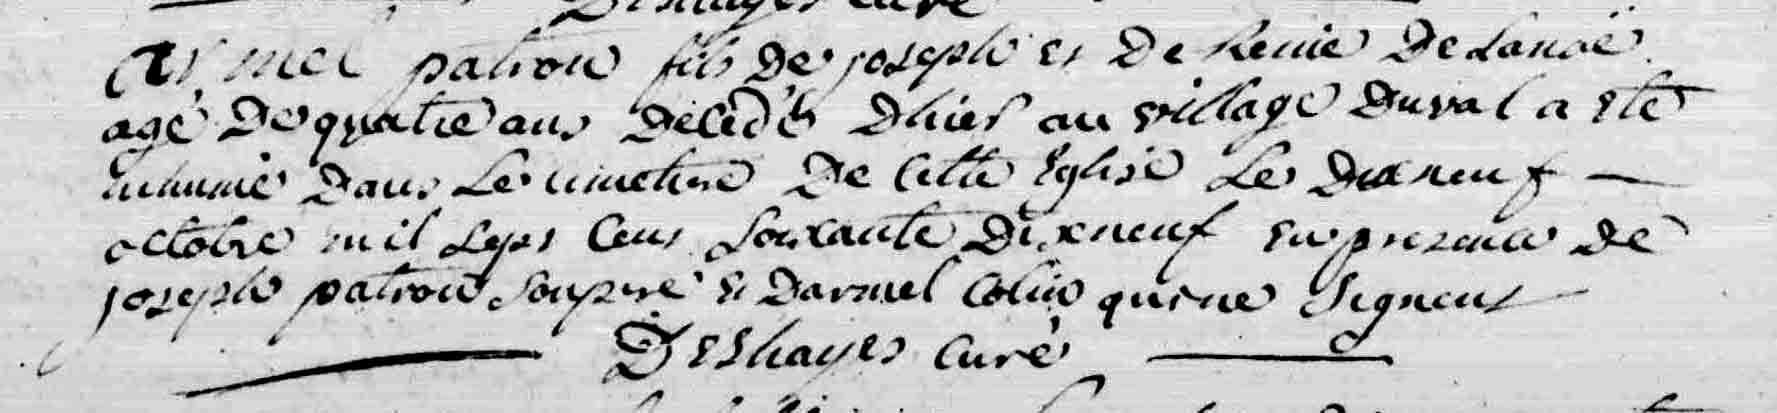 Deshayes curé
armel patron fils de joseph et De Renée Delanoë
agé De quatre ans Décédé D'hier au village Duval a eté
inhumé Dans Le cimetiere De Cette Eglise Le Dixneuf
octobre mil sept cent soixante Dixneuf en presence de
joseph patron son pere et Darmel Colin qui ne signent
Deshayes curé